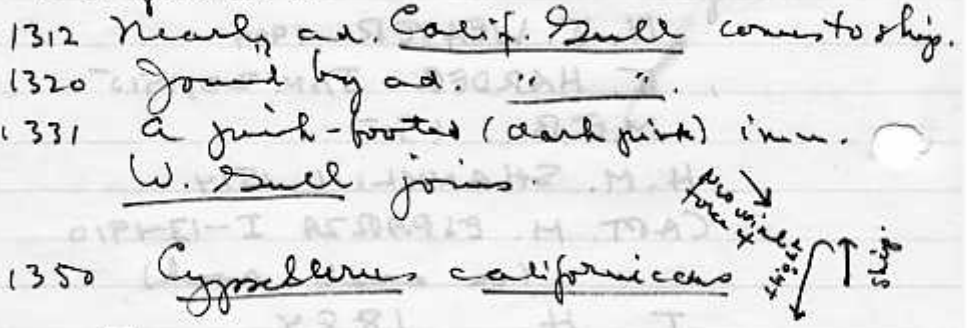 1312 Nearly ad. Calif. Gull comes to ship.
1320 Joined by ad. " ".
1331 A pink-footed (dark pink) imm.
W. Gull joins.
1350 Cypselurus californicus
NW wind
force
flight
Ship.